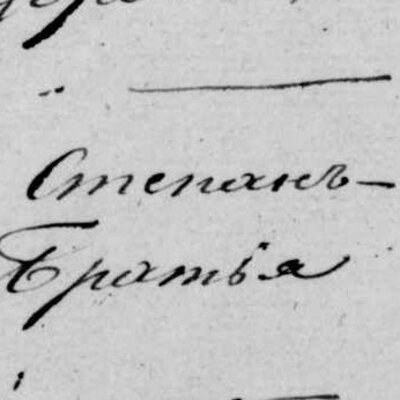 Степанъ —
Братья